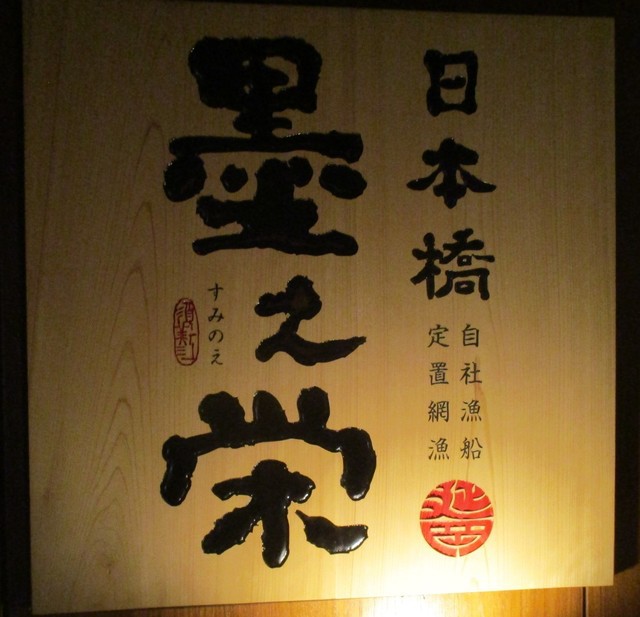 日本橋
自社漁船
定置網漁
延岡
墨之栄
すみのえ